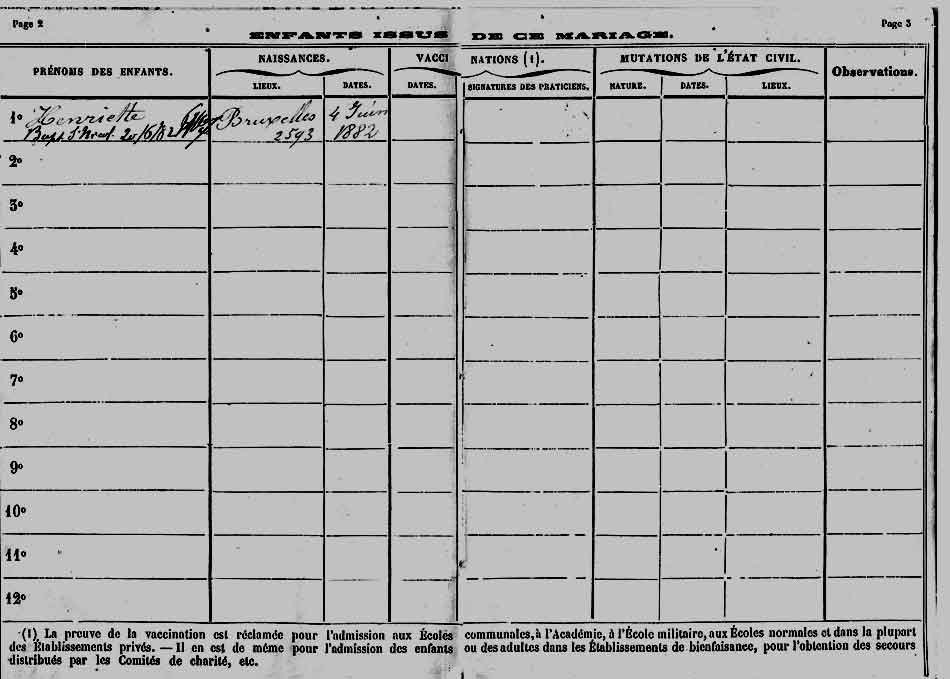 Page 2
Page 3
ENFANTS ISSUS DE CE MARIAGE.
PRÉNOMS DES ENFANTS.
NAISSANCES.
VACCINATIONS (1).
MUTATIONS DE L'ÉTAT CIVIL.
Observations.
LIEUX.
DATES.
DATES.
SIGNATURES DES PRATICIENS.
NATURE.
DATES.
LIEUX.
1º Henriette Bruxelles 4 Juin
20/6/82 2593 1882
2º
3º
4º
5º
6º
7º
8º
9º
10º
11º
12º
(1) La preuve de la vaccination est réclamée pour l'admission aux Écoles communales, à l'Académie, à l'École militaire, aux Écoles normales et dans la plupart
des Établissements privés. — Il en est de même pour l'admission des enfants ou des adultes dans les Établissements de bienfaisance, pour l'obtention des secours
distribués par les Comités de charité, etc.